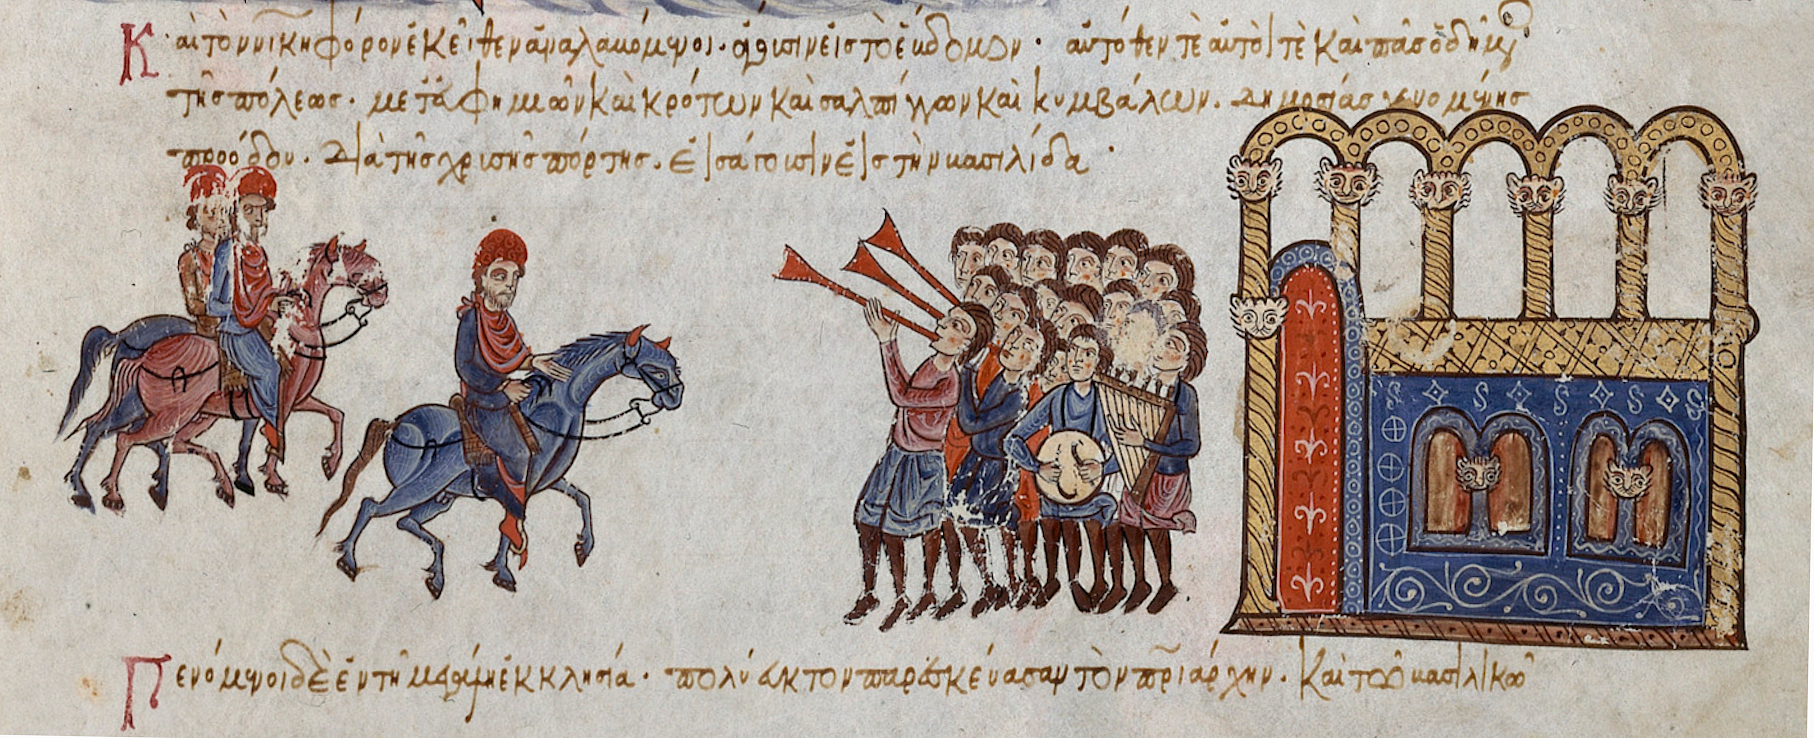 Καὶ τὸν νικηφόρον ἐκεῖθεν ἀναλαβόμενοι· ἄγουσιν εἰς τὸ ἕβδομον· αὐτόθεν τὲ αὐτοὶ τὲ καὶ πᾶς ὁ δῆμος
τῆς πόλεως· μετ εὐφημιῶν καὶ κρότων καὶ σαλπίγγων καὶ κυμβάλων. δημοσίας γενομένης
προόδου. διὰ τῆς χρυσῆς πόρτης. εἰσάγουσιν εἰς τὴν βασιλίδα·
Γενόμενοι δὲ ἐν τῆ μεγάλη ἐκκλησία· πολύευκτον παρεσκεύασαν τὸν πριάρχην. καὶ τοῦ βασιλικοῦ